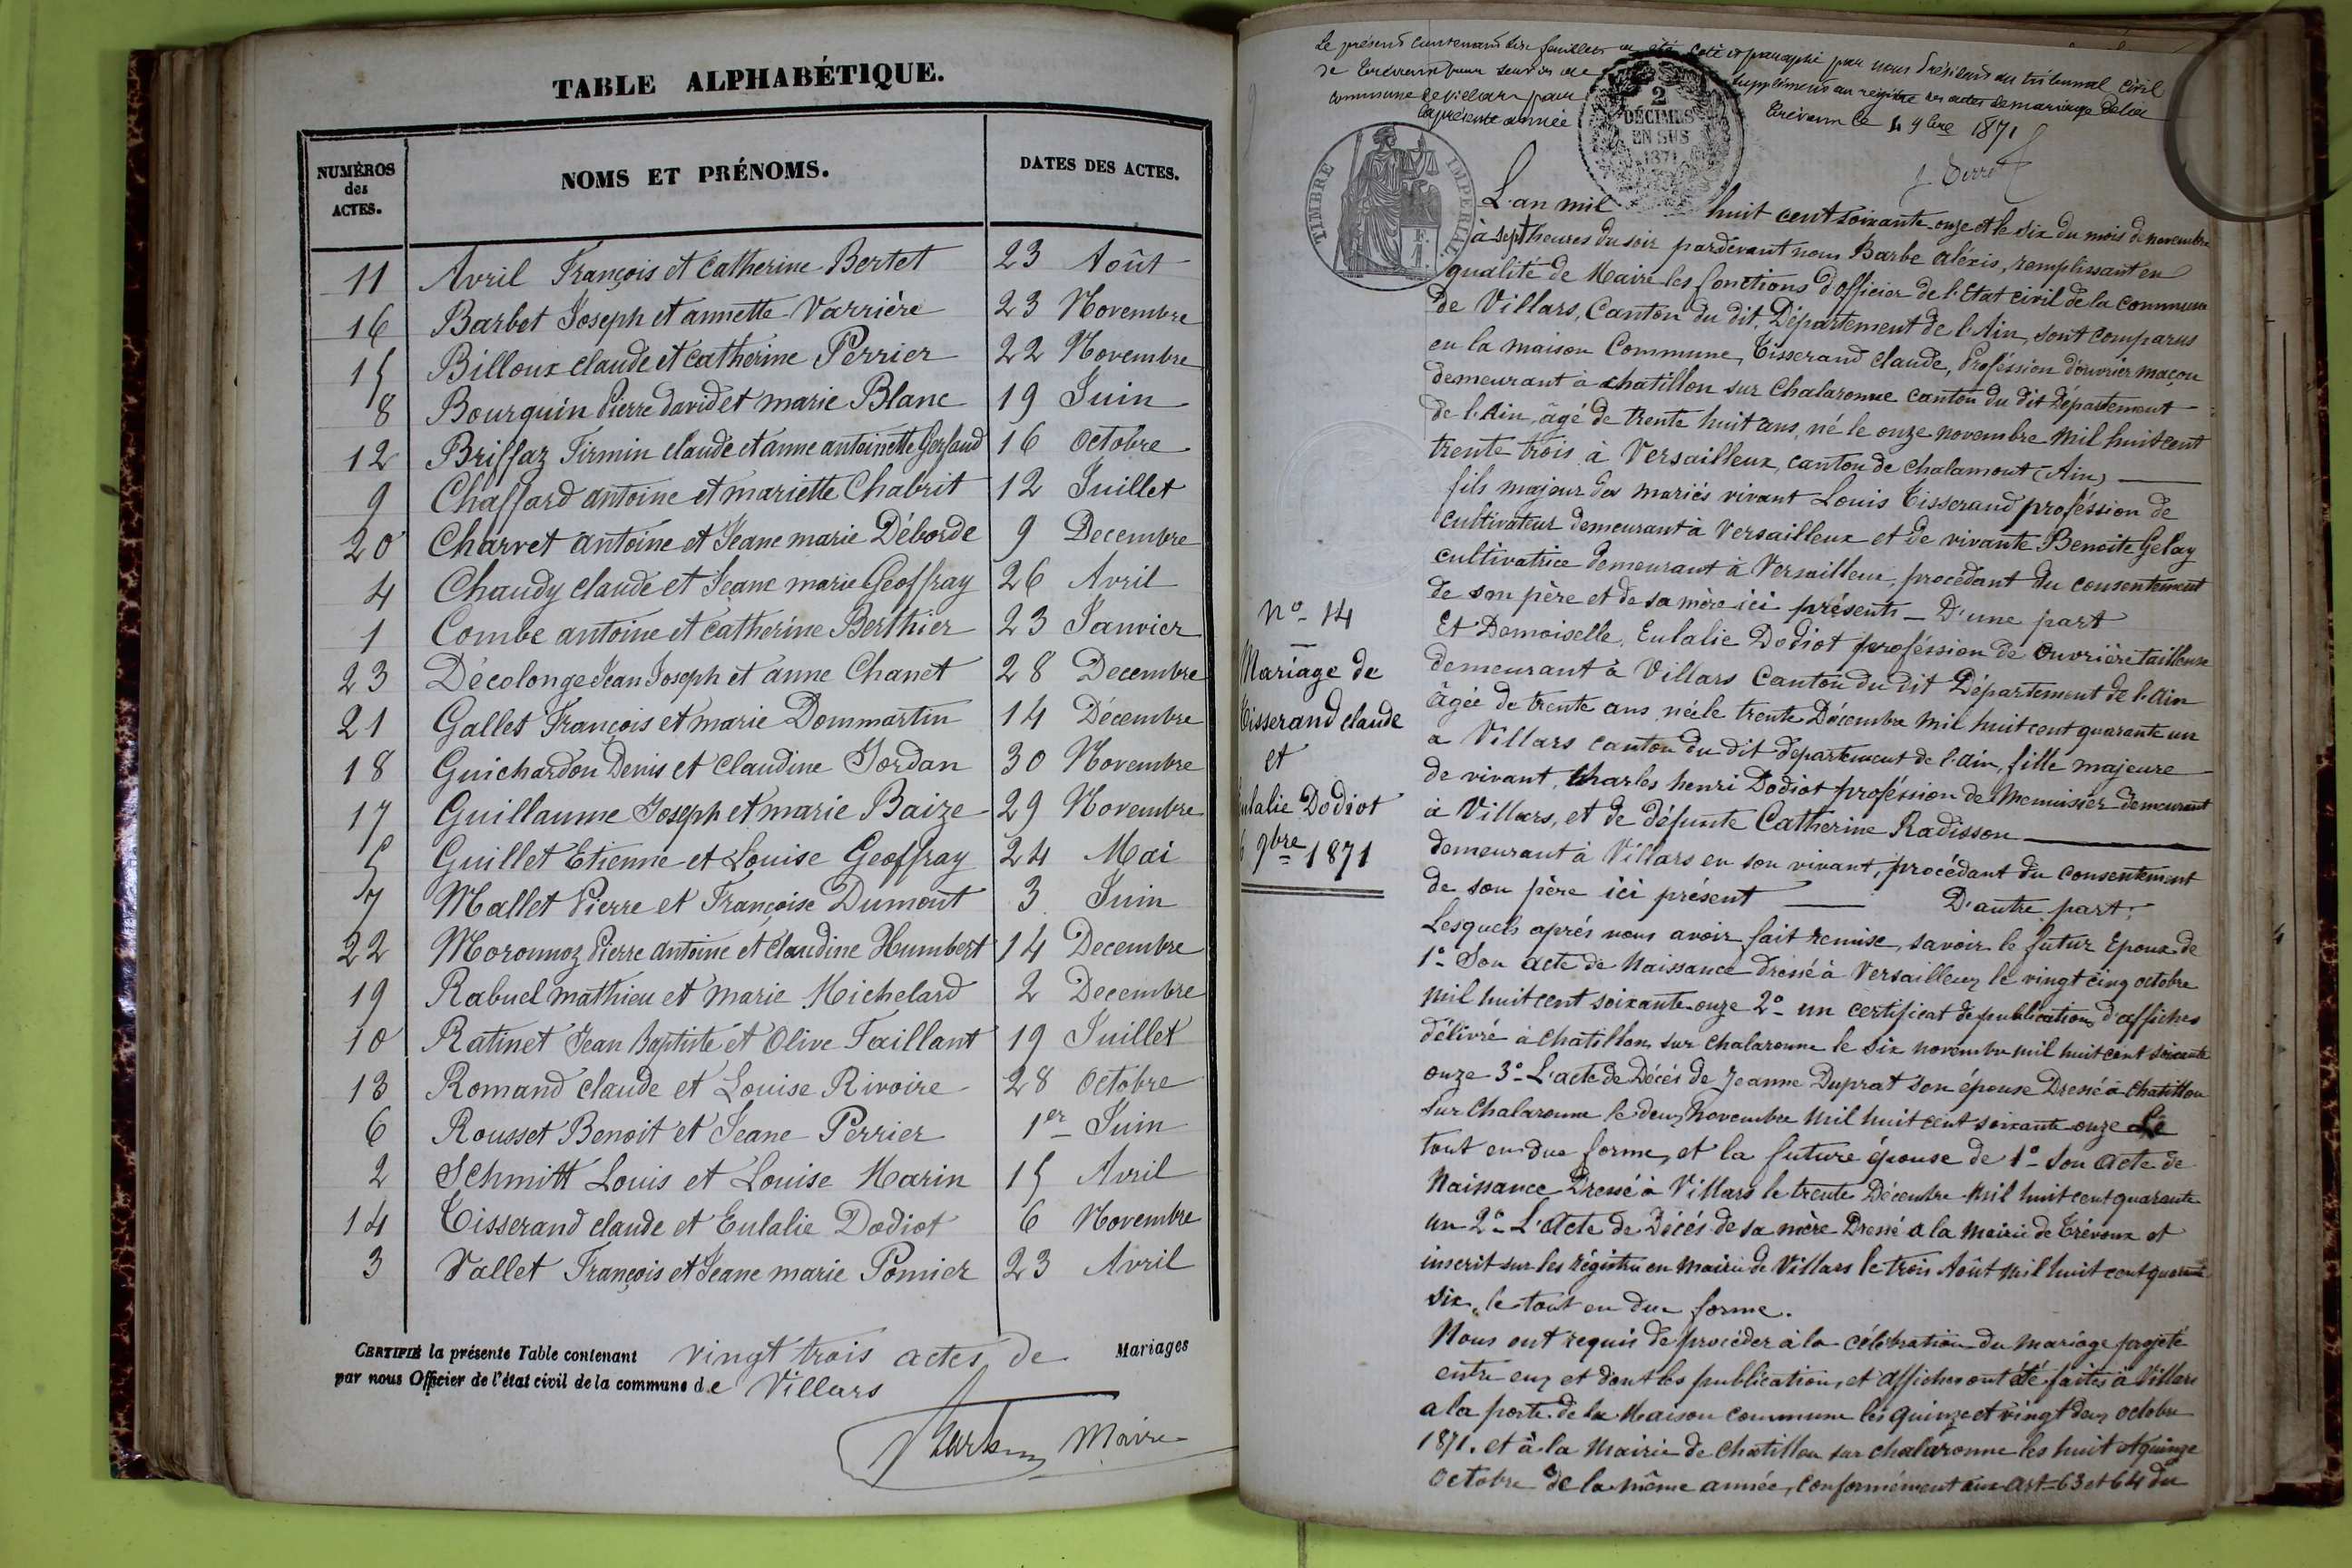 TABLE ALPHABÉTIQUE.
NUMÉROS des ACTES. NOMS ET PRÉNOMS. DATES DES ACTES.
11 Avril François et Catherine Bertet 23 Août
16 Barbet Joseph et annette Varrière 23 Novembre
15 Billoux claude et catherine Perrier 22 Novembre
8 Bourquin Pierre david et marie Blanc 19 Juin
12 Briffaz Firmin claude et anne antoinette Gerfaud 16 Octobre
9 Chaffard antoine et mariette Chabrit 12 Juillet
20 Charvet antoine et Jeane marie Déborde 9 Decembre
4 Chaudy claude et Jeane marie Geoffray 26 Avril
1 Combe antoine et catherine Berthier 23 Janvier
23 Décolonge Jean Joseph et anne Chanet 28 Decembre
21 Gallet François et marie Dommartin 14 Décembre
18 Guichardon Denis et Claudine Jordan 30 Novembre
17 Guillaume Joseph et marie Baize 29 Novembre
5 Guillet Etienne et Louise Geoffray 24 Mai
7 Mallet Pierre et Françoise Dumont 3 Juin
22 Moronnoz Pierre antoine et Claudine Humbert 14 Decembre
19 Rabuel mathieu et marie Michelard 2 Decembre
10 Ratinet Jean Baptiste et Olive Faillant 19 Juillet
13 Romand claude et Louise Rivoire 28 Octobre
6 Rousset Benoit et Jeane Perrier 1er Juin
2 Schmitt Louis et Louise Marin 15 Avril
14 Tisserand claude et Eulalie Dodiot 6 Novembre
3 Vallet François et Jeane marie Pomier 23 Avril
CERTIFIÉ la présente Table contenant vingt trois actes de Mariages
par nous Officier de l'état civil de la commune de Villars
Maire
Le présent contenant dix feuillets a été coté et paraphé par nous Président du tribunal civil
de Trévoux pour servir de supplément au registre des actes de mariage de la
commune de Villars pour
la présente année Trévoux le 4 9bre 1871
2 DÉCIMES EN SUS 1871
TIMBRE IMPERIAL
L'an mil huit cent soixante onze et le six du mois de novembre
à sept heures du soir pardevant nous Barbe aléxis, remplissant en
qualité de Maire les fonctions d'officier de l'Etat civil de la commune
de Villars, Canton du dit, Département de l'Ain, sont comparus
en la maison Commune, Tisserand claude, Proféssion d'ouvrier maçon
demeurant à chatillon sur Chalaronne canton du dit Département
de l'Ain, âgé de trente huit ans, né le onze novembre mil huit cent
trente trois à Versailleux canton de chalamont (Ain)
fils majeur des mariés vivant Louis Tisserand proféssion de
cultivateur demeurant à Versailleux et de vivante Benoite Gelay
cultivatrice demeurant à Versailleux, procédant du consentement
de son père et de sa mère ici présents — D'une part
Et Demoiselle, Eulalie Dodiot proféssion de Ouvrière tailleuse
demeurant à Villars Canton du dit Département de l'Ain
âgée de trente ans née le trente Décembre mil huit cent quarante un
a Villars canton du dit département de l'Ain, fille majeure
de vivant, Charles henri Dodiot proféssion de Menuisier demeurant
à Villars, et de défunte Catherine Radisson
demeurant à Villars en son vivant, procédant du consentement
de son père ici présent — D'autre part;
Lesquels aprés nous avoir fait remise, savoir le futur Epoux de
1° Son acte de Naissance Dressé à Versailleux le vingt cinq octobre
mil huit cent soixante onze 2° un certificat de publications d'affiches
délivré à Chatillon sur chalaronne le Six novembre mil huit cent soixante
onze 3° L'acte de Décés de Jeanne Duprat son épouse Dressé à Chatillon
sur Chalaronne le deux Novembre mil huit cent soixante onze Le
tout en due forme, et la future épouse de 1° Son Acte de
Naissance Dressé à Villars le trente Décembre mil huit cent quarante
un 2° L'Acte de Décés de sa mère Dressé a la Mairie de Trévoux et
inscrit sur les régistres en mairie de Villars le trois Août mil huit cent quarante
six, le tout en due forme.
Nous ont requis de procéder à la célébration du mariage projeté
entre eux et dont les publications et affiches ont été faites à Villars
a la porte de la Maison commune les quinze et vingt deux octobre
1871. et à la Mairie de Chatillon sur chalaronne les huit et quinze
Octobre de la même année, conformément aux art 63 et 64 du
N° 14
Mariage de
Tisserand claude
et
Eulalie Dodiot
6 9bre 1871